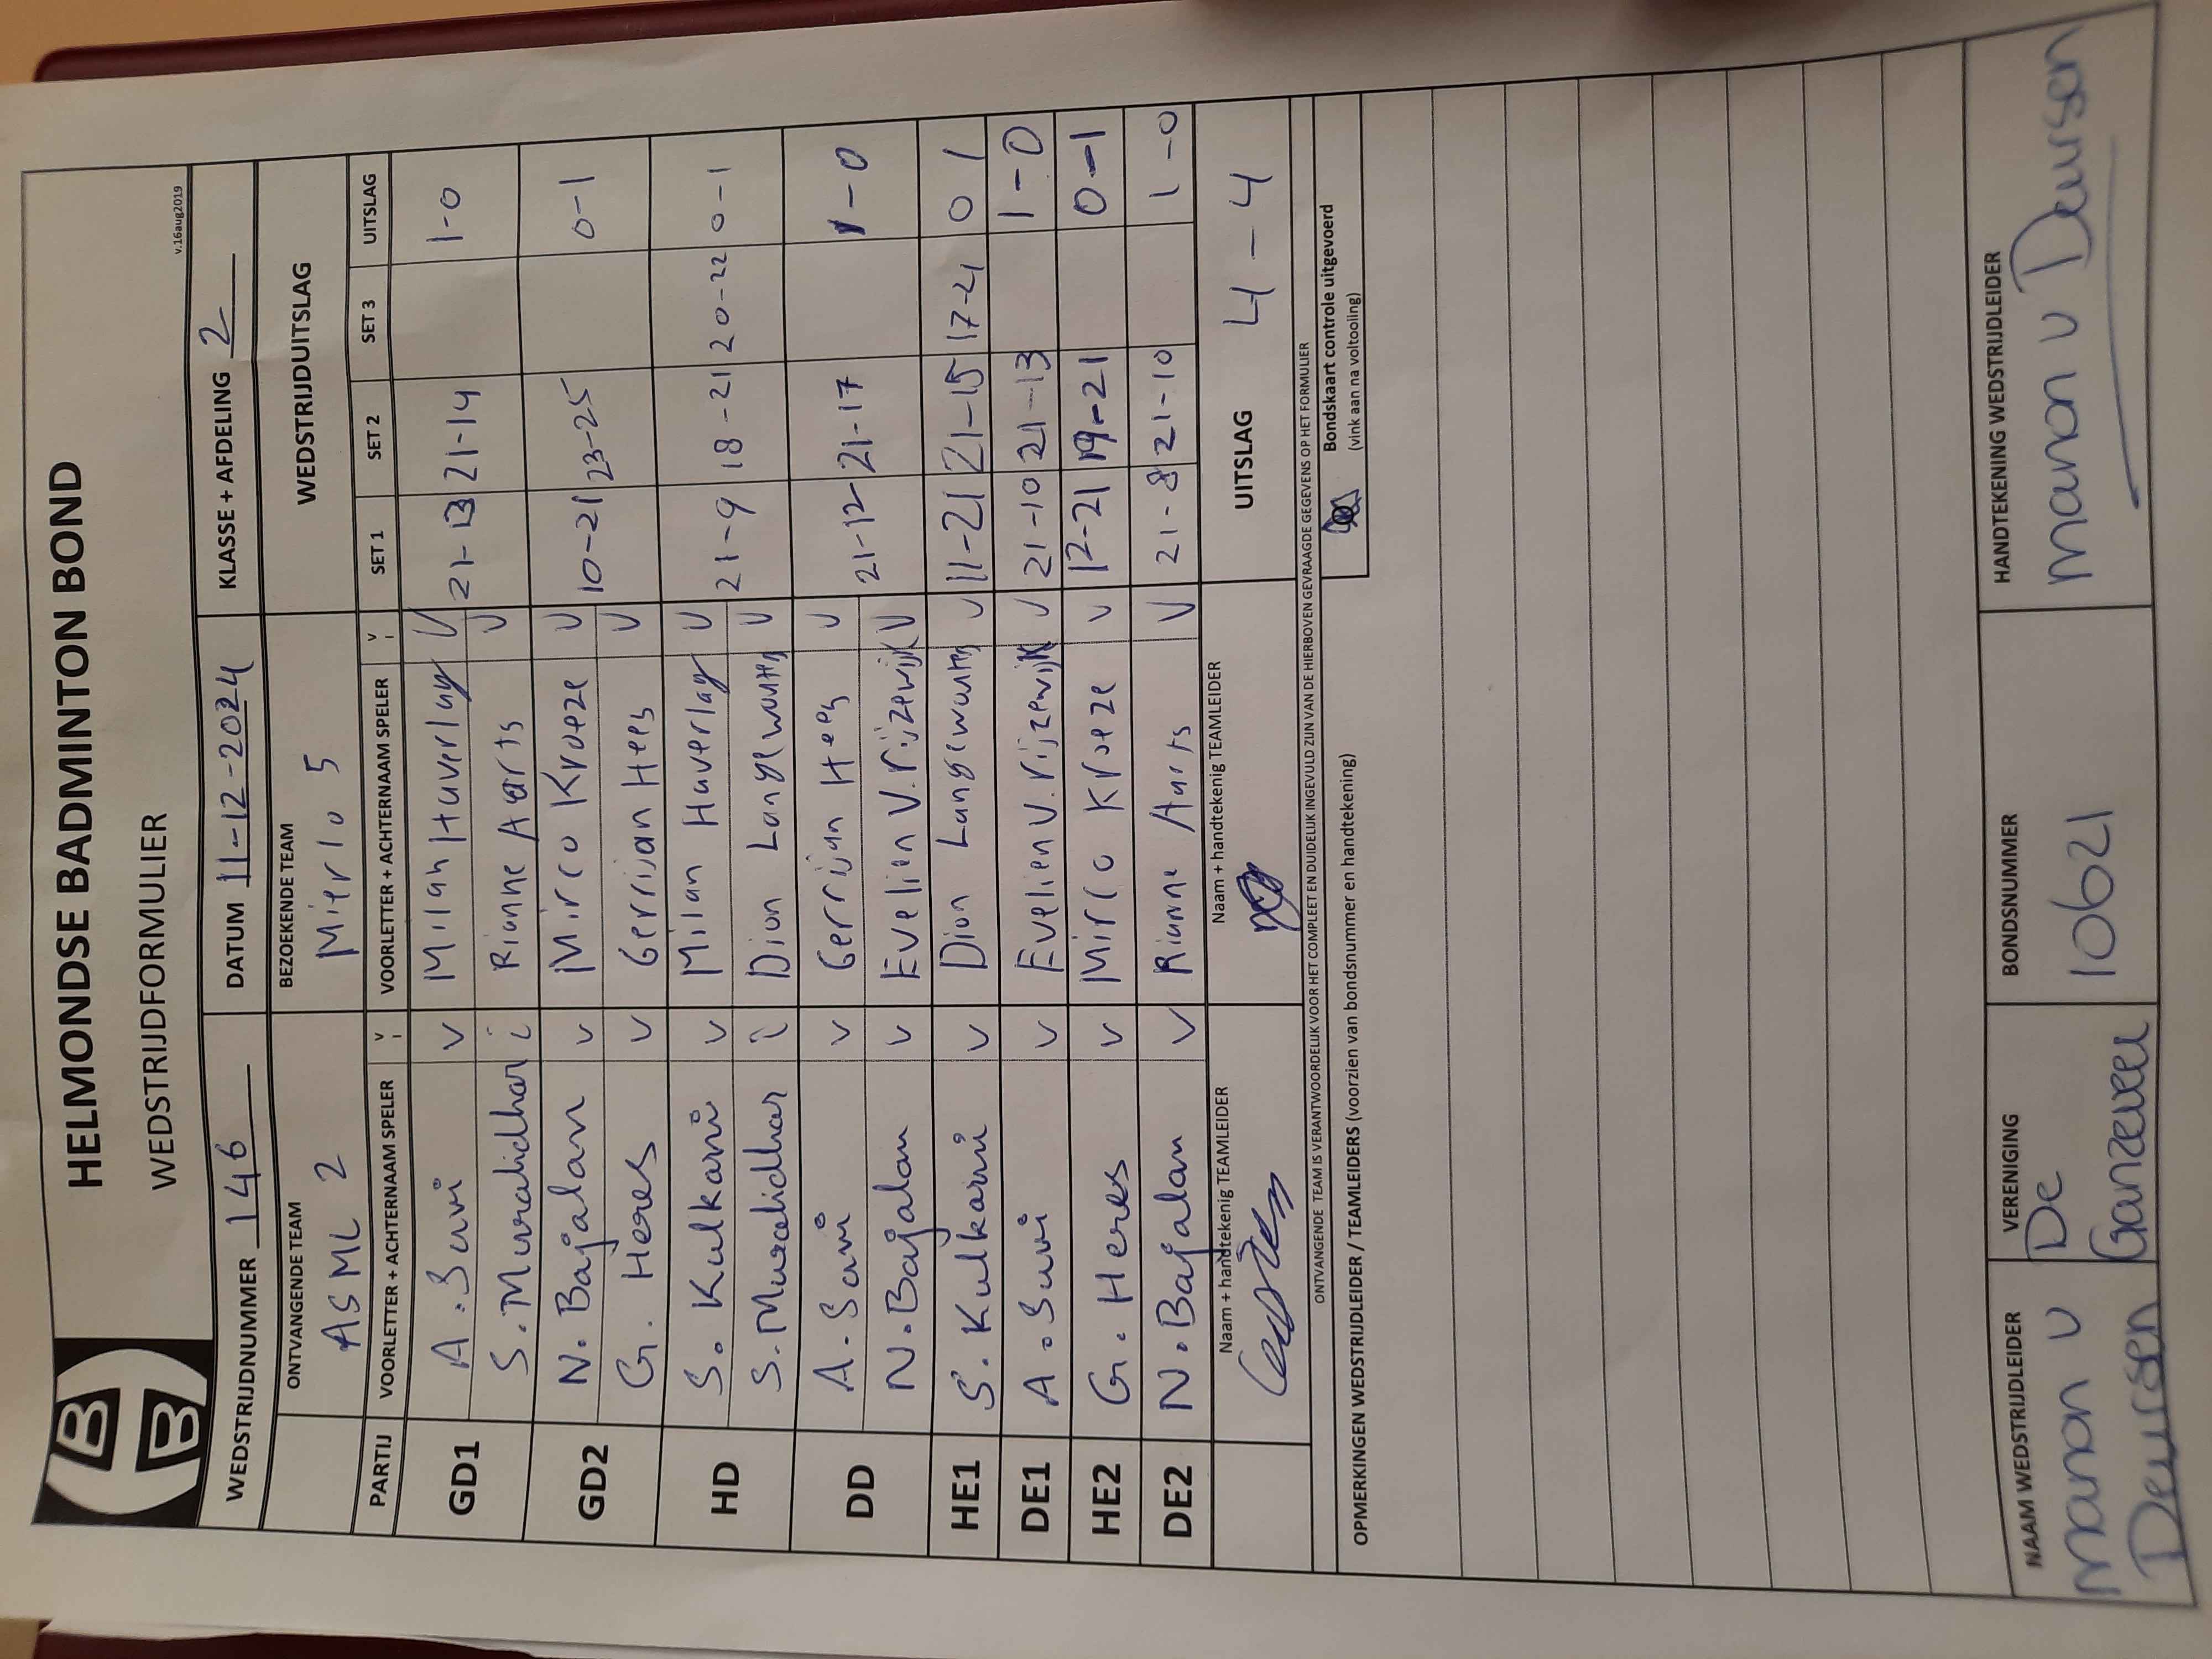 HELMONDSE BADMINTON BOND
WEDSTRIJDFORMULIER
v.16aug2019
WEDSTRIJDNUMMER 146 DATUM 11-12-2024 KLASSE + AFDELING 2
ONTVANGENDE TEAM BEZOEKENDE TEAM WEDSTRIJDUITSLAG
ASML 2 Mierlo 5
PARTIJ VOORLETTER + ACHTERNAAM SPELER V VOORLETTER + ACHTERNAAM SPELER V SET 1 SET 2 SET 3 UITSLAG
GD1 A. Suvi v Milan Haverlag V 21-13 21-14 1-0
S. Muralidhar i Rianne Aarts v
GD2 N. Bajalan v Mirco Kroeze v 10-21 23-25 0-1
G. Heres v Gerrijan Hees v
HD S. Kulkarni v Milan Haverlag v 21-9 18-21 20-22 0-1
S. Muralidhar i Dion Langewouters v
DD A. Suvi v Gerrijan Hees v 21-12 21-17 1-0
N. Bajalan v Evelien V. Rijzewijk V
HE1 S. Kulkarni v Dion Langewouters v 11-21 21-15 17-21 0 1
DE1 A. Suvi v Evelien V. Rijzewijk v 21-10 21-13 1-0
HE2 G. Heres v Mirco Kroeze v 12-21 19-21 0-1
DE2 N. Bajalan V Rianne Aarts V 21-8 21-10 1-0
Naam + handtekenig TEAMLEIDER Naam + handtekenig TEAMLEIDER UITSLAG 4-4
ONTVANGENDE TEAM IS VERANTWOORDELIJK VOOR HET COMPLEET EN DUIDELIJK INGEVULD ZIJN VAN DE HIERBOVEN GEVRAAGDE GEGEVENS OP HET FORMULIER
Bondskaart controle uitgevoerd
(vink aan na voltooling)
OPMERKINGEN WEDSTRIJDLEIDER / TEAMLEIDERS (voorzien van bondsnummer en handtekening)
NAAM WEDSTRIJDLEIDER VERENIGING BONDSNUMMER HANDTEKENING WEDSTRIJDLEIDER
manon v De 10621 manon v Deursen
Deursen Ganzeveer